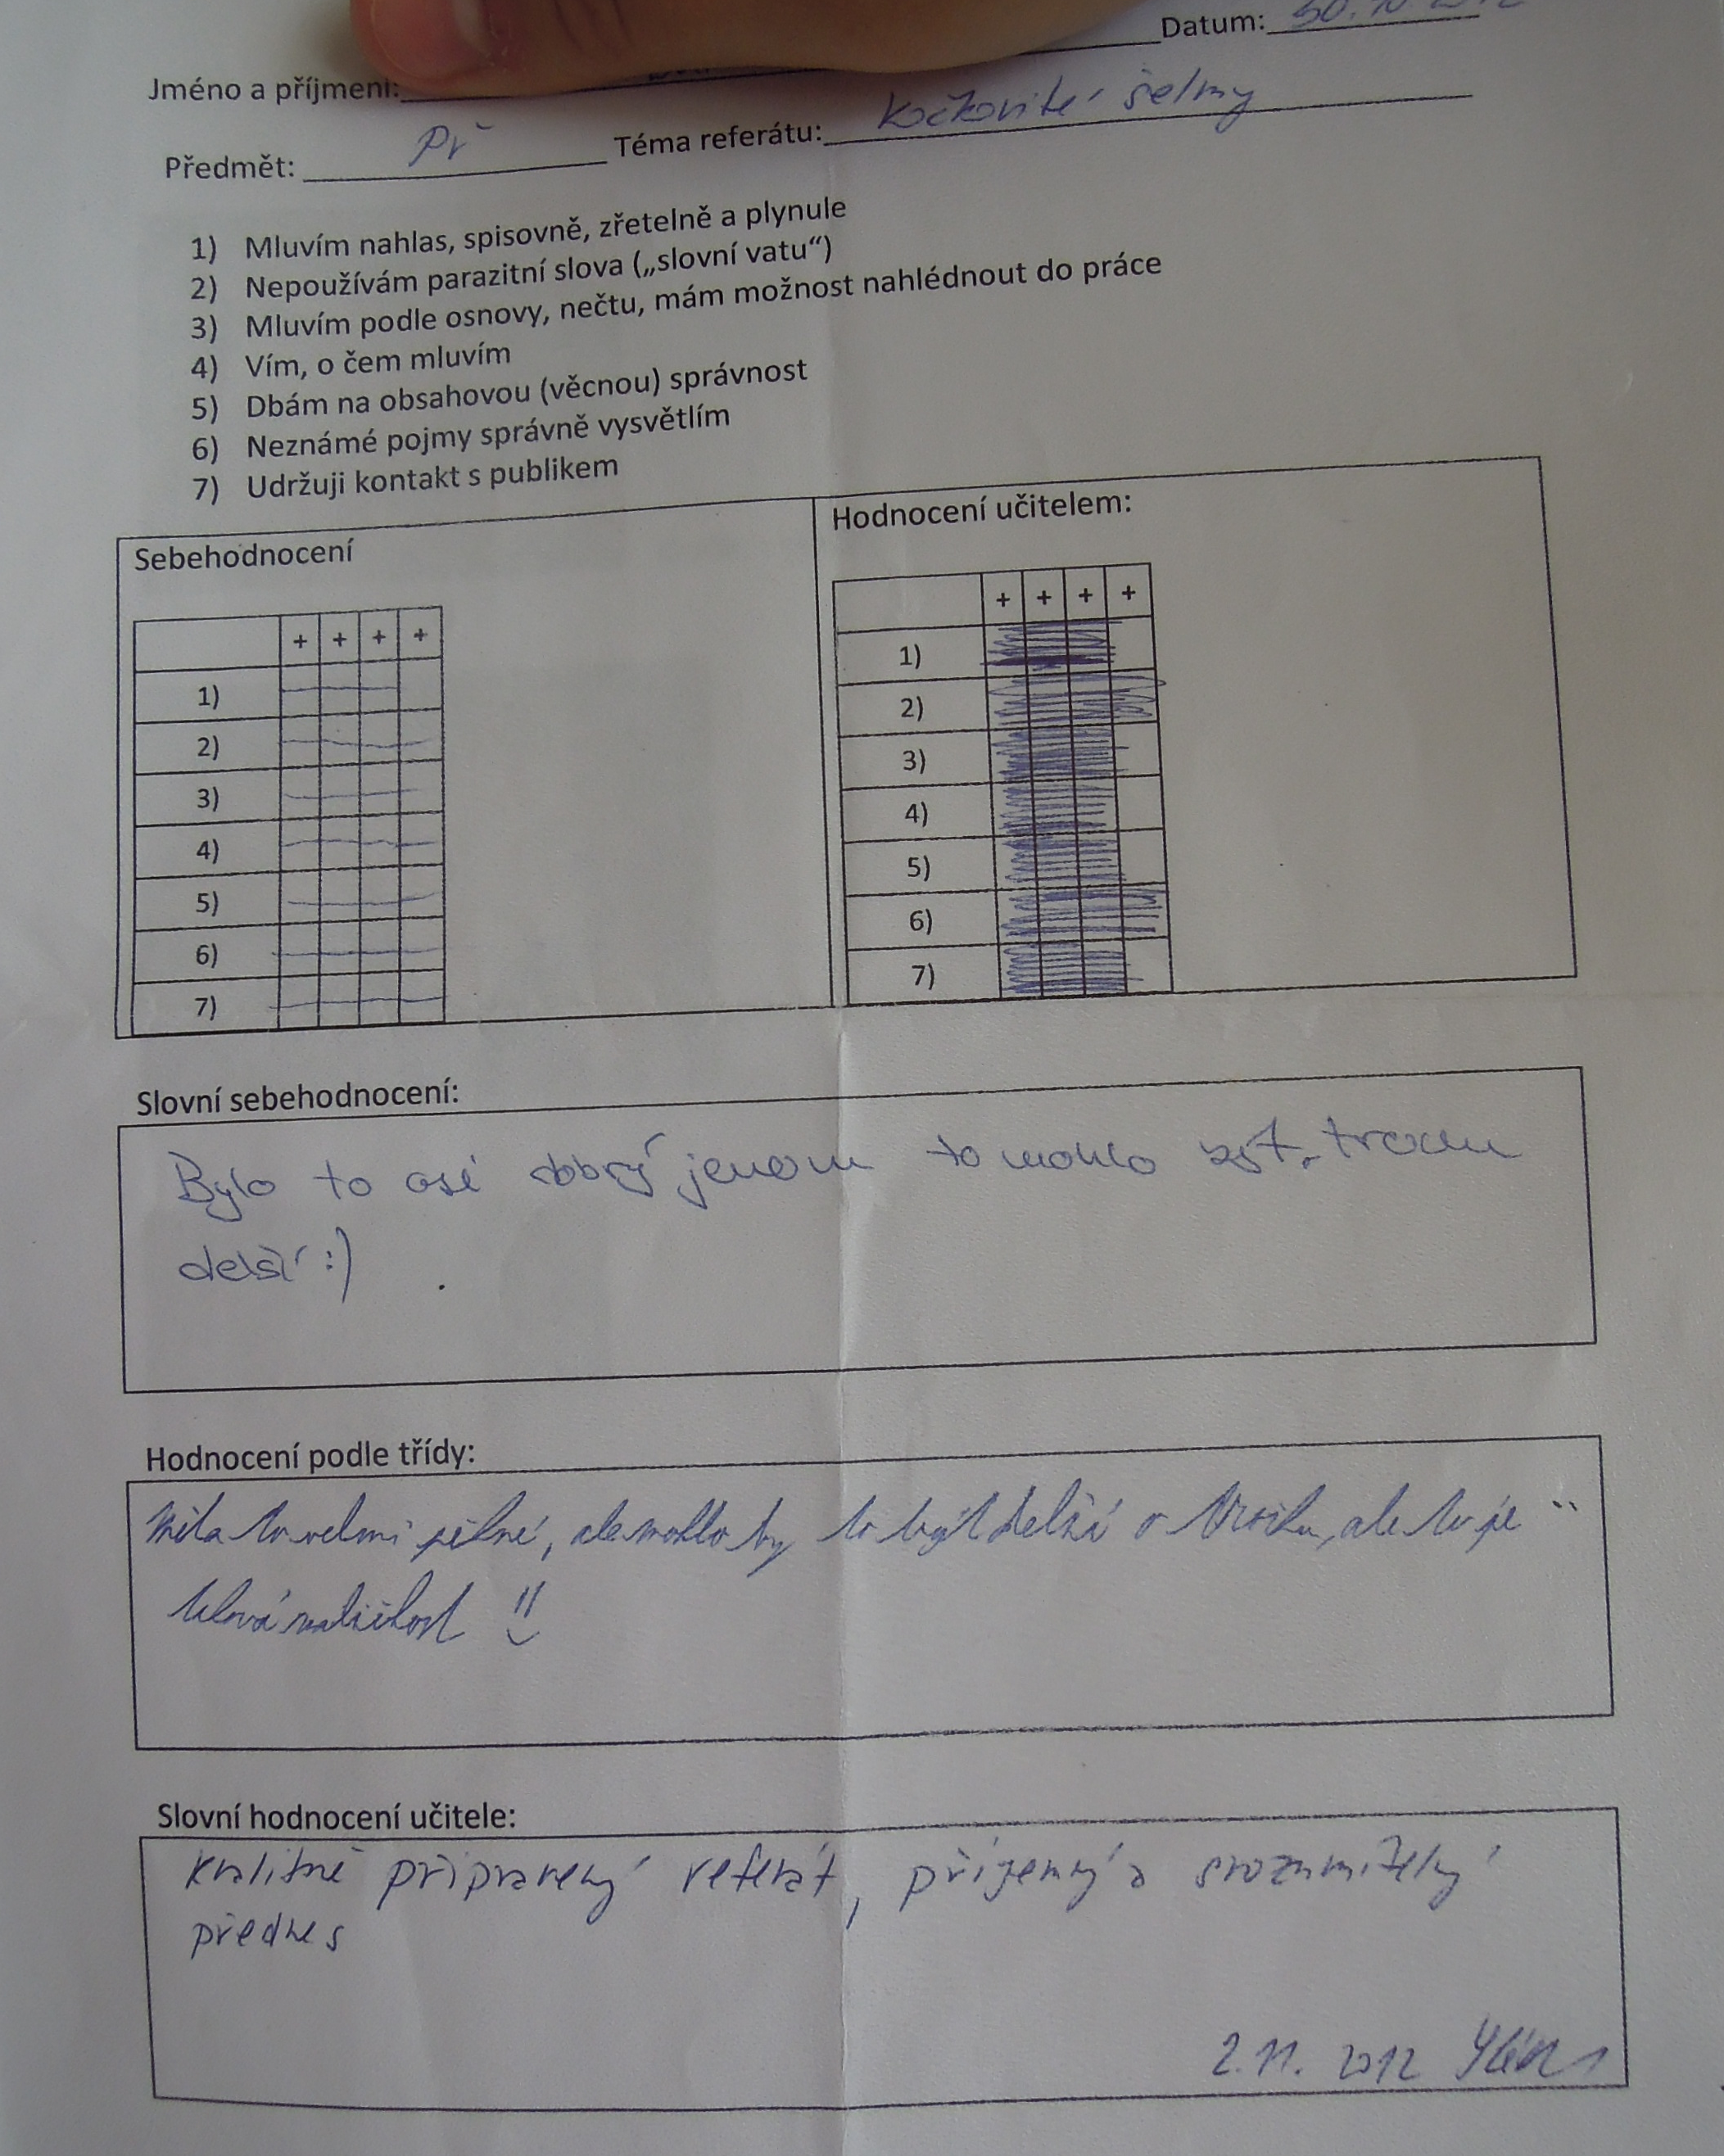 Datum: 30.10.2012
Jméno a příjmení:
Předmět: Př Téma referátu: Kočkovité šelmy
1) Mluvím nahlas, spisovně, zřetelně a plynule
2) Nepoužívám parazitní slova („slovní vatu“)
3) Mluvím podle osnovy, nečtu, mám možnost nahlédnout do práce
4) Vím, o čem mluvím
5) Dbám na obsahovou (věcnou) správnost
6) Neznámé pojmy správně vysvětlím
7) Udržuji kontakt s publikem
Sebehodnocení
+ + + +
1)
2)
3)
4)
5)
6)
7)
Hodnocení učitelem:
+ + + +
1)
2)
3)
4)
5)
6)
7)
Slovní sebehodnocení:
Bylo to asi dobrý jenom to mohlo být trochu
delší :)
Hodnocení podle třídy:
měla to velmi pěkné, ale mohlo by to být delší o trochu, ale to je
taková maličkost
Slovní hodnocení učitele:
Kvalitně připravený referát, příjemný a srozumitelný
přednes
2.11. 2012